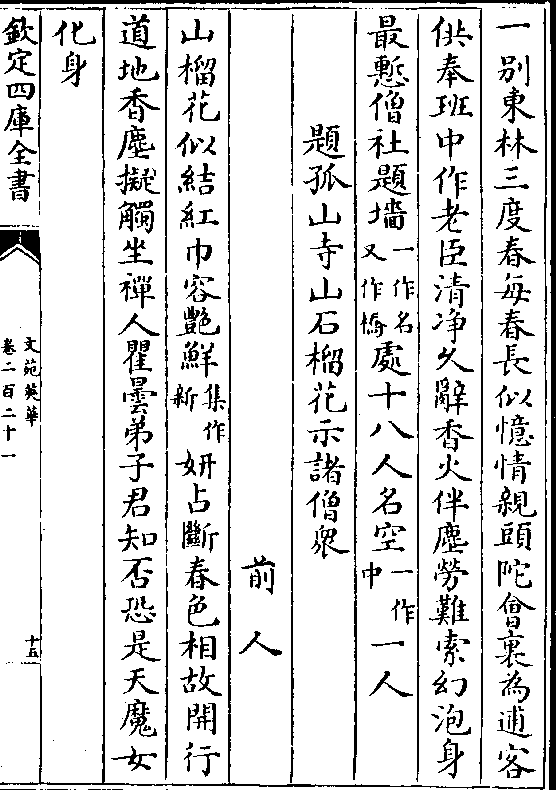 一别東林三度春每春長似憶情親頭陀㑹裏為逋客
供奉班中作老臣清净久辭香火伴塵勞難索幻泡身
最慙僧社題墻一作名又作橋處十八人名空一作中一人
題孤山寺山石榴花示諸僧衆
前人
山榴花似結紅巾容艷鮮集作新妍占斷春色相故開行
道地香塵擬觸坐禪人瞿曇弟子君知否恐是天魔女
化身
欽定四庫全書
文苑英華
卷二百二十一
十五